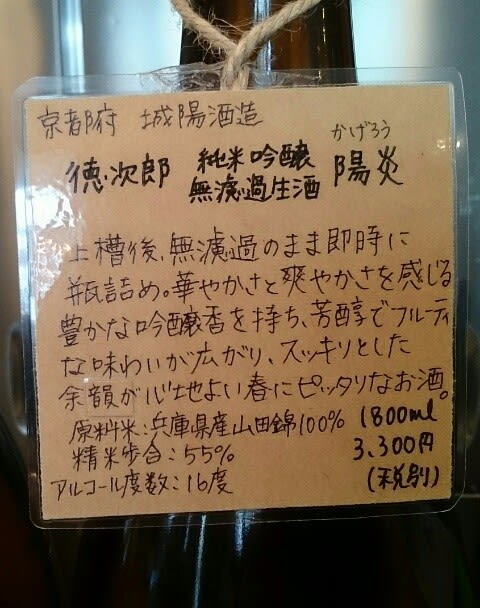 京都府 城陽酒造
かげろう
徳次郎 純米吟醸 陽炎
無濾過生酒
上槽後、無濾過のまま即時に
瓶詰め。華やかさと爽やかさを感じる
豊かな吟醸香を持ち、芳醇でフルーティ
な味わいが広がり、スッキリとした
余韻が心地よい春にピッタリなお酒。
原料米:兵庫県産山田錦100% 1800ml
精米歩合:55% 3,300円
アルコール度数:16度 (税別)